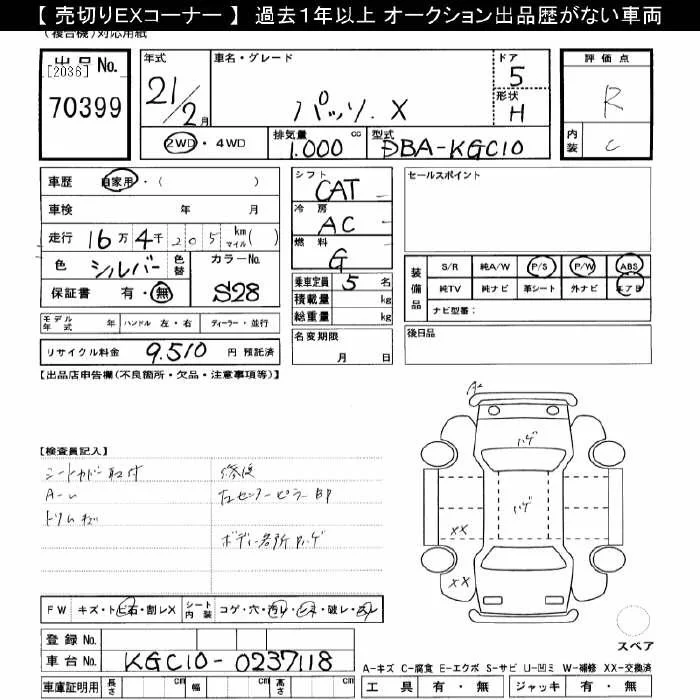 【 売切りEXコーナー 】 過去1年以上 オークション出品歴がない車両
(複合機)対応用紙
出品 No.
[2036]
70399
年式
21/2月
車名・グレード
パッソ. X
ドア
5
形状
H
評価点
R
内装
C
2WD・4WD
排気量
1.000 cc
型式
DBA-KGC10
車歴 自家用・( )
車検 年 月
走行 16万 4千 205 km マイル( )
色 シルバー 色替 カラーNo.
保証書 有・無 S28
シフト
CAT
冷房
AC
燃料
G
乗車定員 5 名
積載量 kg
総重量 kg
セールスポイント
装備品
S/R 純A/W P/S P/W ABS
純TV 純ナビ 革シート 外ナビ エアB
ナビ型番:
モデル年式 年 ハンドル 左・右 ディーラー・並行
リサイクル料金 9.510 円 預託済
名変期限
月 日
後日品
【出品店申告欄(不良箇所・欠品・注意事項等)】
【検査員記入】
シートカバー取付 修復
A-レ 左センターピラー
トリムキズ
ボディー各所ハゲ
A2
ハゲ
ハゲ
XX
XX
FW キズ・トビ石・割レX シート内装 コゲ・穴・汚レ・キズ・破レ
登録 No.
車台 No. KGC10-0237118
車庫証明用 長さ cm 幅 cm 高さ cm
スペア
A-キズ C-腐食 E-エクボ S-サビ U-凹ミ W-補修 XX-交換済
工具 有・無 ジャッキ 有・無